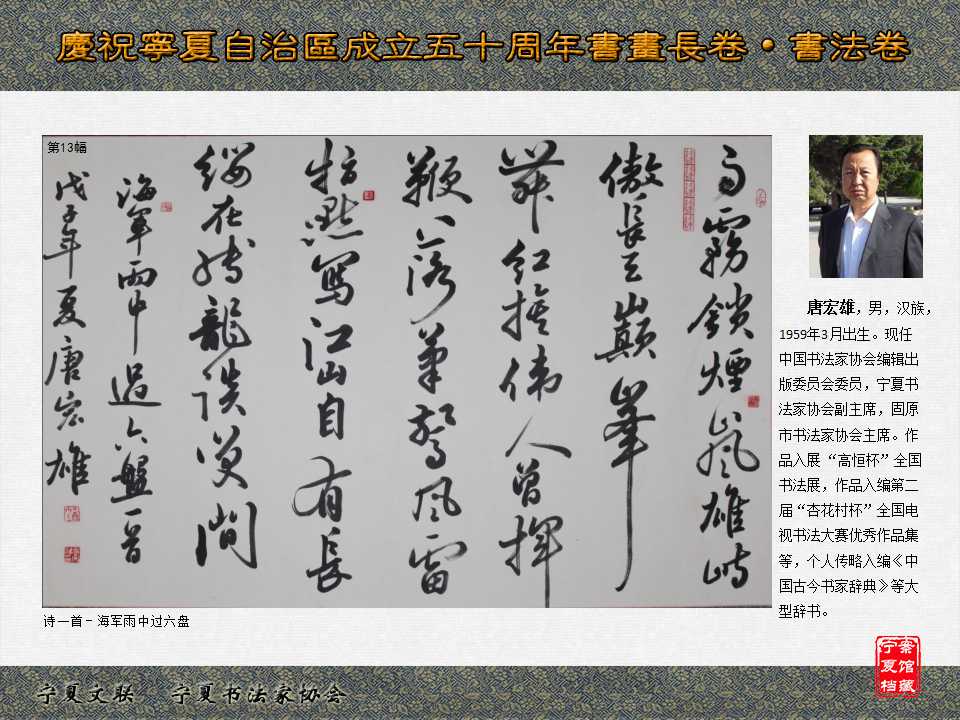 慶祝寧夏自治區成立五十周年書畫長卷·書法卷
第13幅
雨霧鎖煙嵐雄峙
傲長天巔峯
舞紅偉人曾揮
鞭落筆驚風雷
指點寫江山自有長
纓在縛龍談笑間
海軍雨中過六盤一首
戊子年夏唐宏雄
诗一首－海军雨中过六盘
唐宏雄，男，汉族，
1959年3月出生。现任
中国书法家协会编辑出
版委员会委员，宁夏书
法家协会副主席，固原
市书法家协会主席。作
品入展“高恒杯”全国
书法展，作品入编第二
届“杏花村杯”全国电
视书法大赛优秀作品集
等，个人传略入编《中
国古今书家辞典》等大
型辞书。
宁夏文联 宁夏书法家协会
宁夏档案馆藏